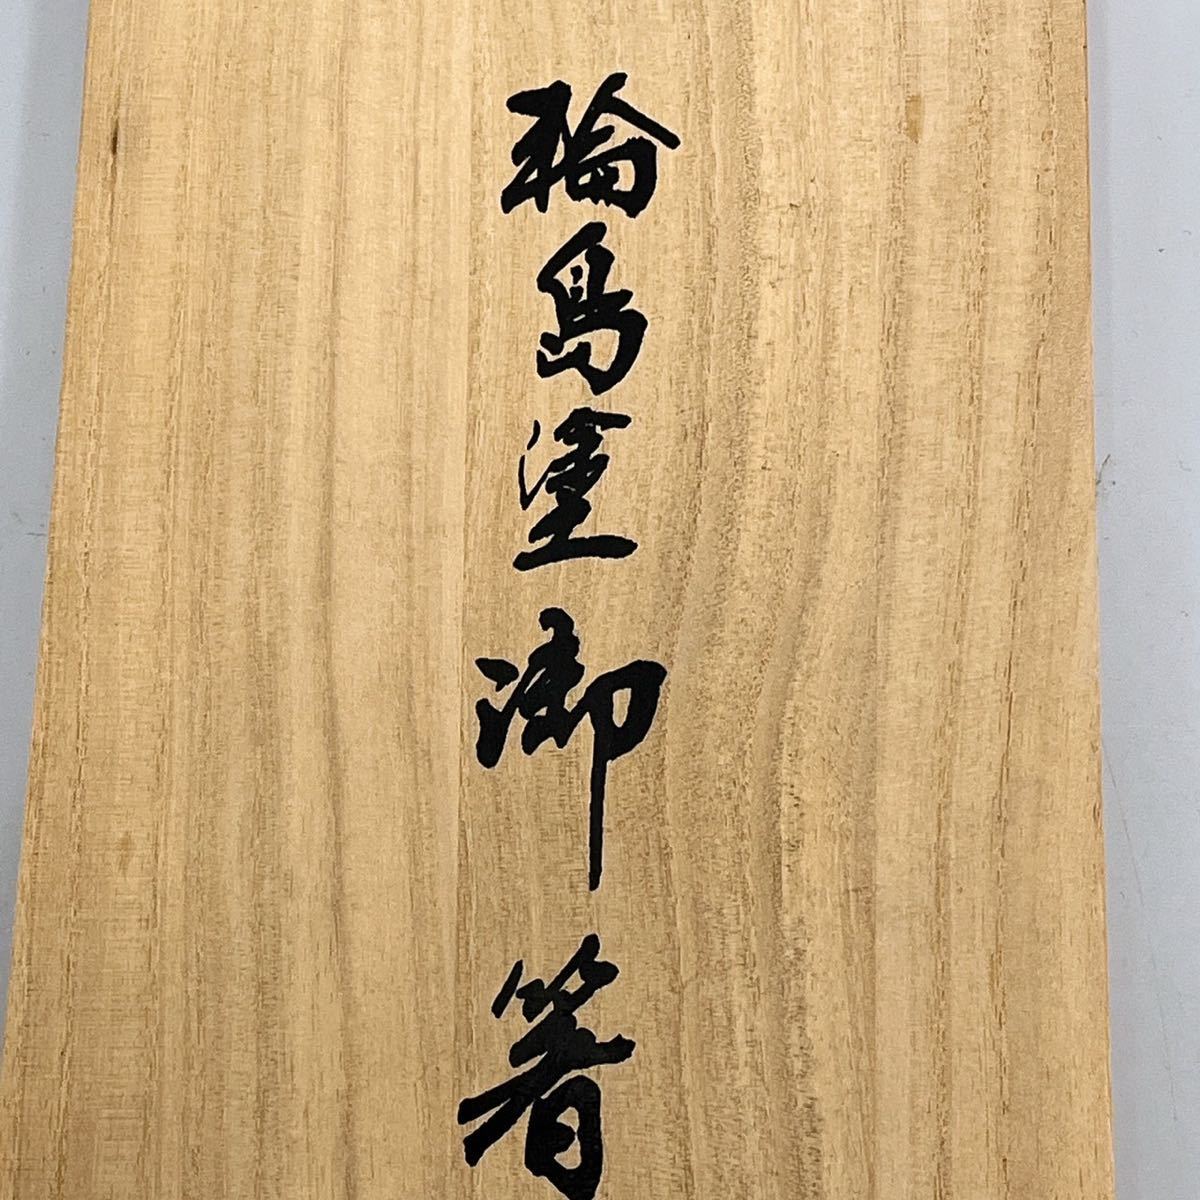 輪島塗御箸